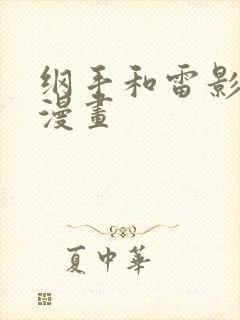 纲手和雷影
漫畫
夏中華